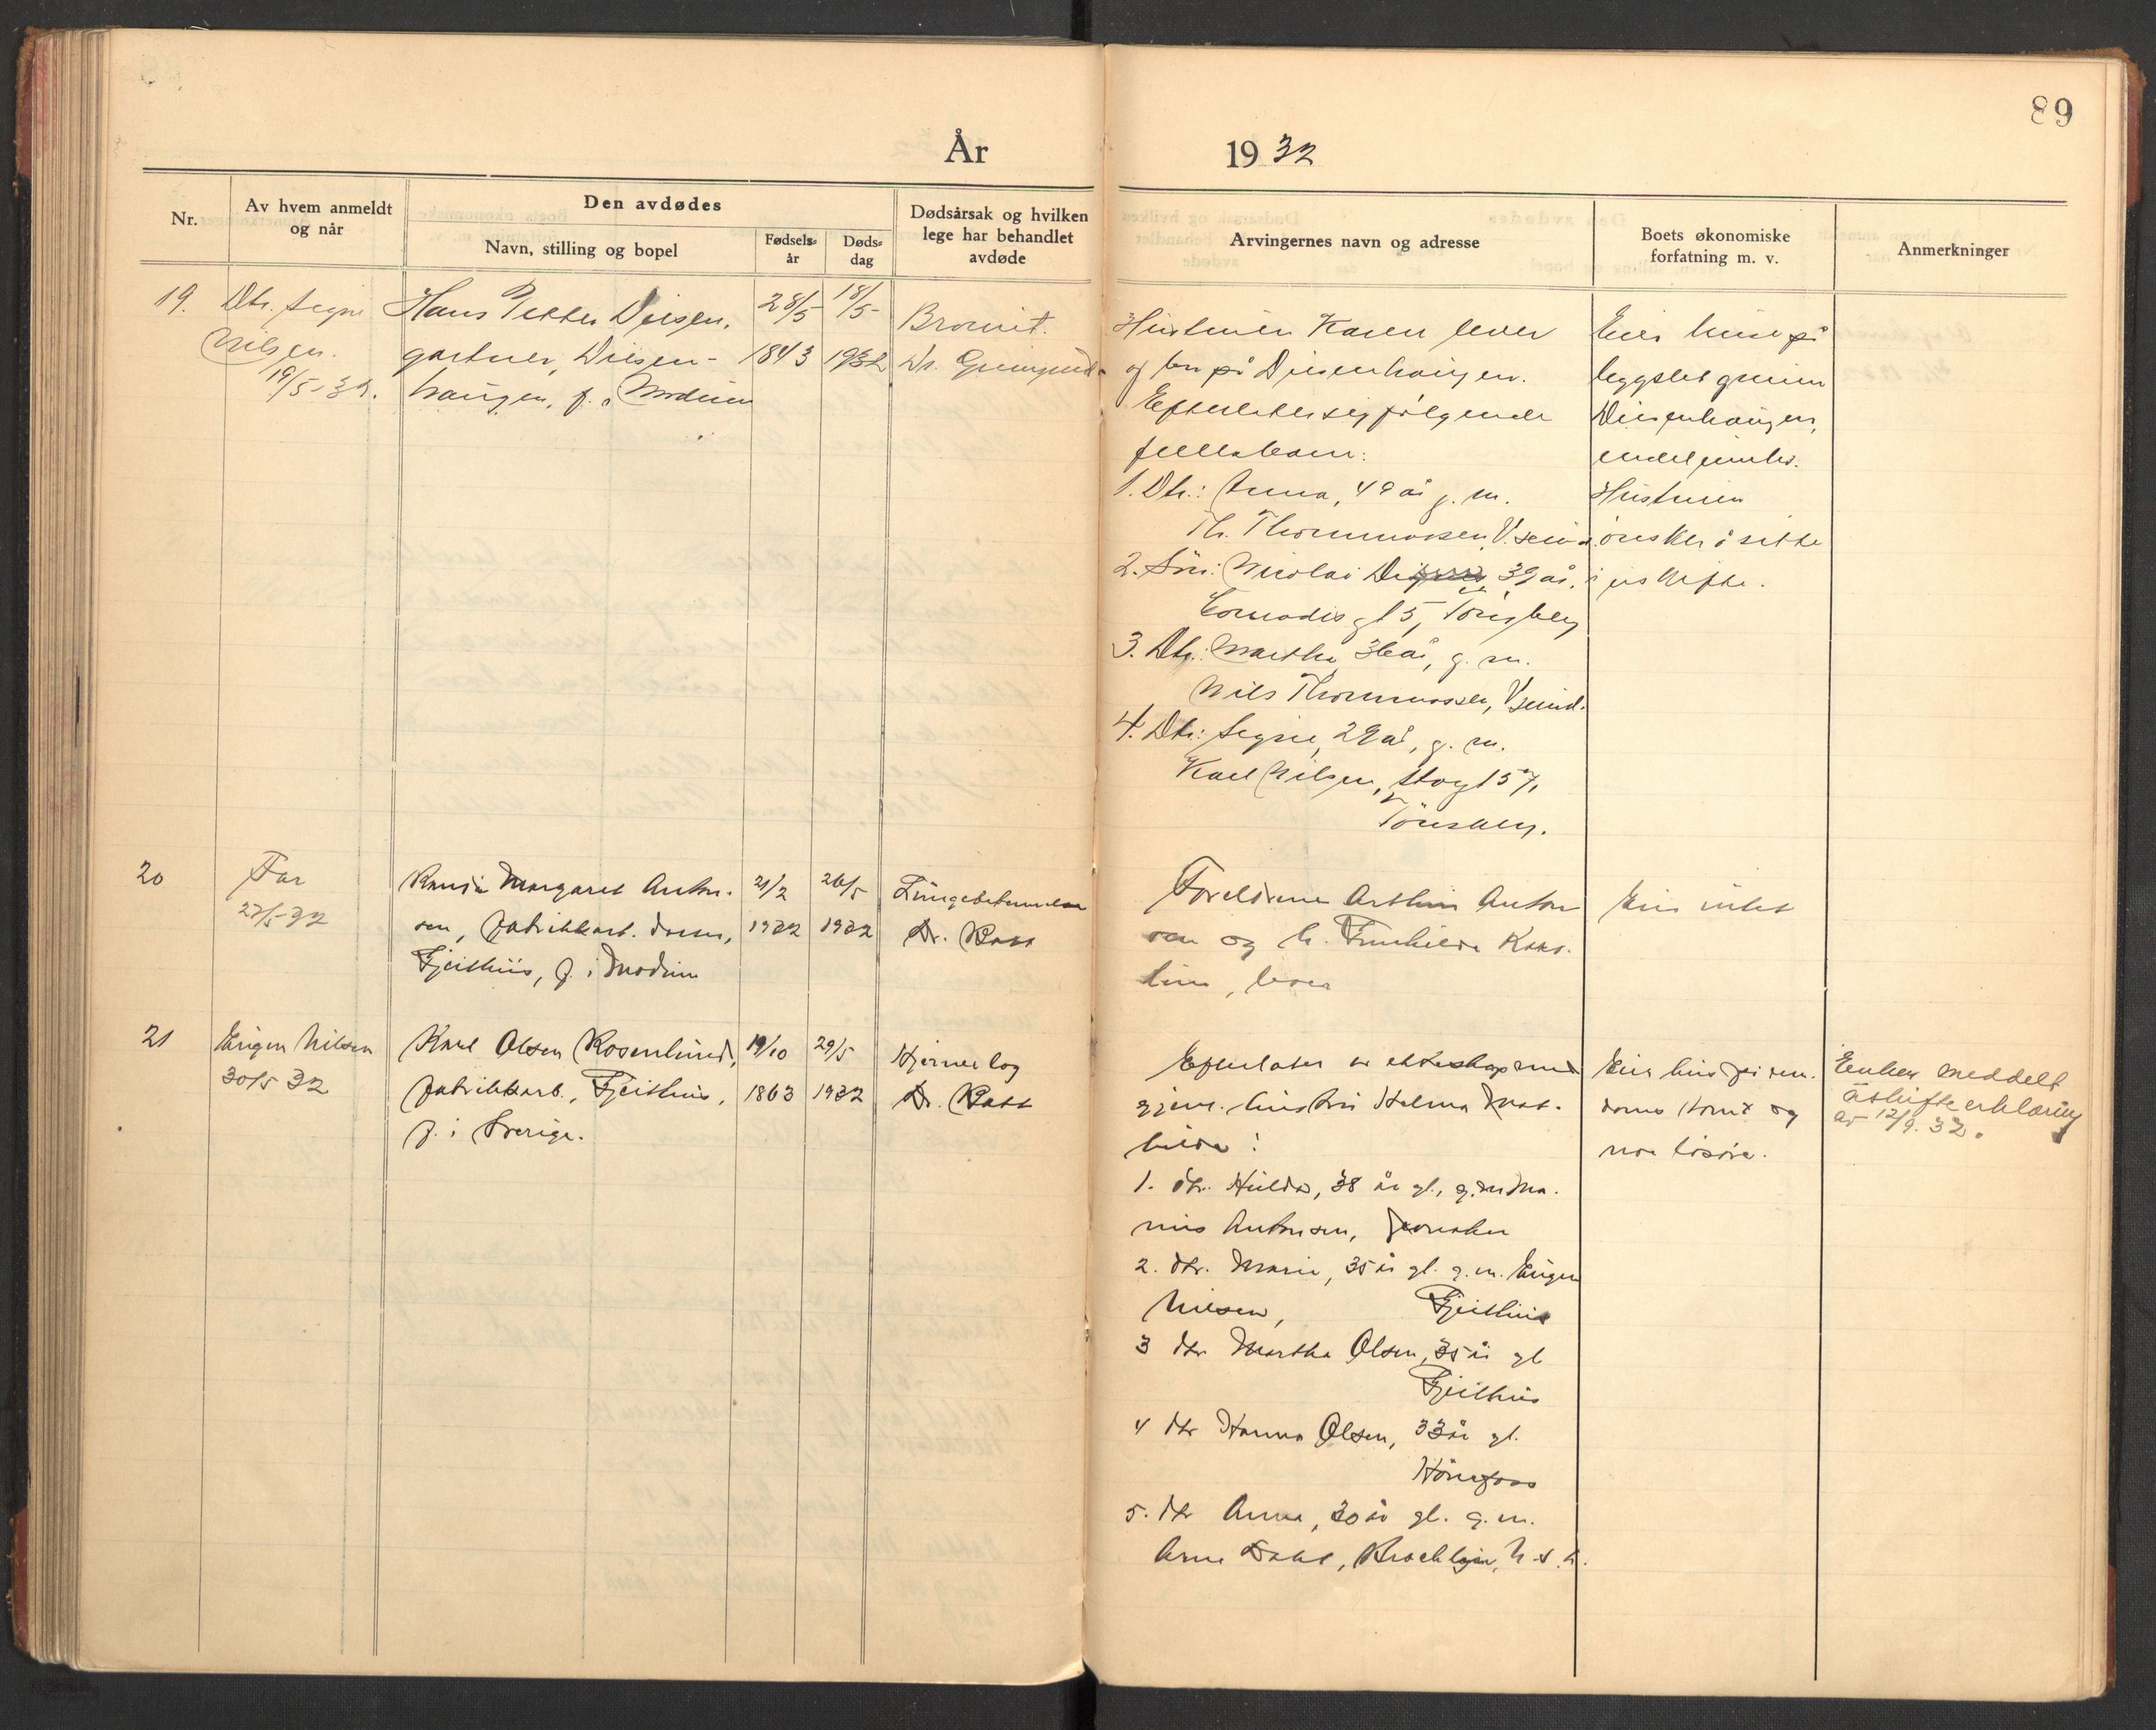 89
År 1932
Nr.
Av hvem anmeldt
og når
Den avdødes
Navn, stilling og bopel
Fødsels-
år
Døds-
dag
Dødsårsak og hvilken
lege har behandlet
avdøde
Arvingernes navn og adresse
Boets økonomiske
forfatning m. v.
Anmerkninger
19.
Dtr. Signe
Nilsen.
19/5-32.
Hans Petter Diesen,
gartner, Diesen-
haugen, f. i Modum
28/5
1843
18/5-
1932
Dr.
Hustruen Karen lever
og bor på Diesenhaugen.
Efterlater sig følgende
fellesbarn:
1. Dtr.: Anna, 49 år g. m.
Th. Thommassen,
2. Søn: Nicolai 39 år,
gt 5, Tønsberg
3. Dtr.: Martha 36 år, g. m.
Nils Thommassen,
4. Dtr: Signe, 29 år, g. m.
Karl Nilsen, Storgt 57,
Tønsberg.
Eier huse på
bygslet grunn
Diesenhaugen,
endel innbo.
Hustruen
ønsker å sitte
i uskifte.
20
Far
27/5-32
Margaret Anton-
sen, fabrikkarb. datter,
Geithus, f. i Modum
21/2
1932
26/5
1932
Lungebetennelse
Dr.
Foreldrene Arthur Anton
sen og h. Karo-
line, lever
Eier intet
21
Eugen Nilsen
30/5 32
Karl Olsen Rosenlund,
fabrikkarb., Geithus,
f. i Sverige.
19/10
1863
29/5
1932
Hjerneslag
Dr.
Efterlater av ekteskap med
gjenl. hustru Halma Mat-
hilde:
1. dtr. Hulda, 38 år gl., g. m. Ma-
rius Antonsen,
2. dtr. Marie, 35 år gl. g. m. Eugen
Nilsen, Geithus
3 dtr Martha Olsen, 35 år gl
Geithus
4 dtr Hanna Olsen, 33 år gl.
Hønefoss
5. dtr Anna, 30 år gl. g. m.
Arne Dahl,
Eier hus på eien-
doms tomt og
noe løsøre.
Enken meddelt
uskifteerklæring
av 12/9. 32.